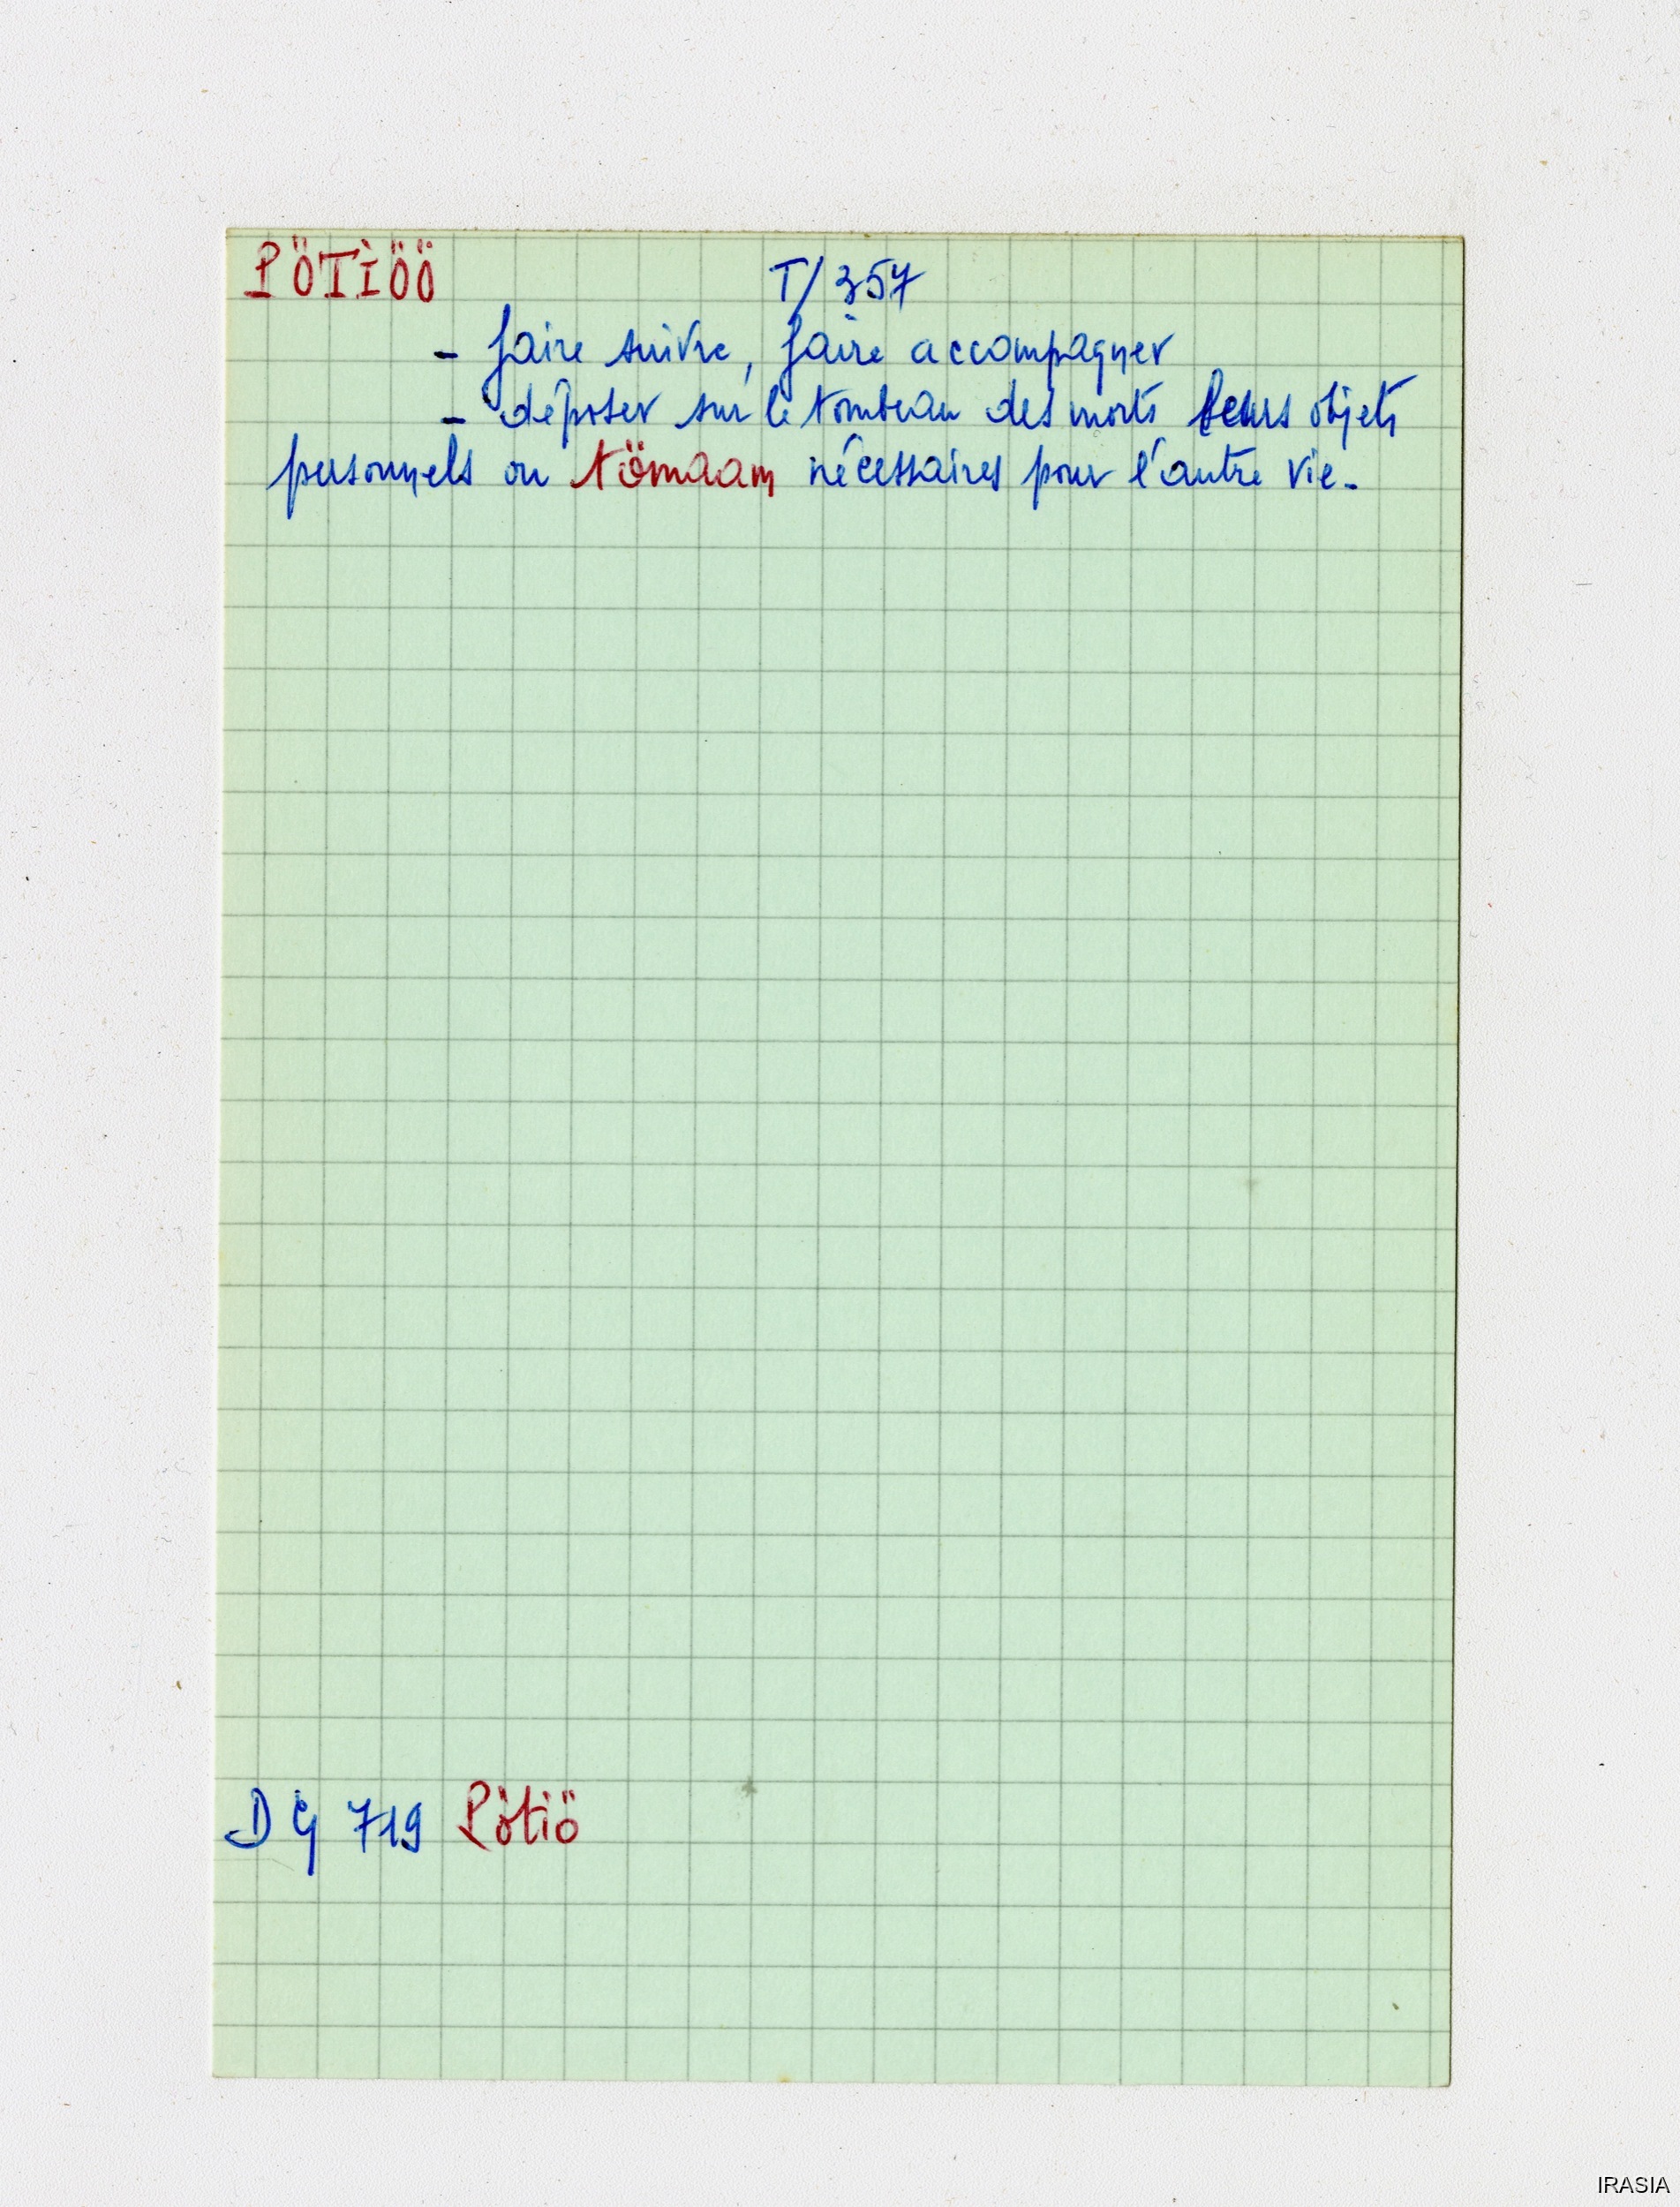 PÖTÌÖÖ
T/357
- faire suivre, faire accompagner
- déposer sur le tombeau des morts leurs objets
personnels ou tömaam nécessaires pour l'autre vie.
DG 719 Pötiö
IRASIA